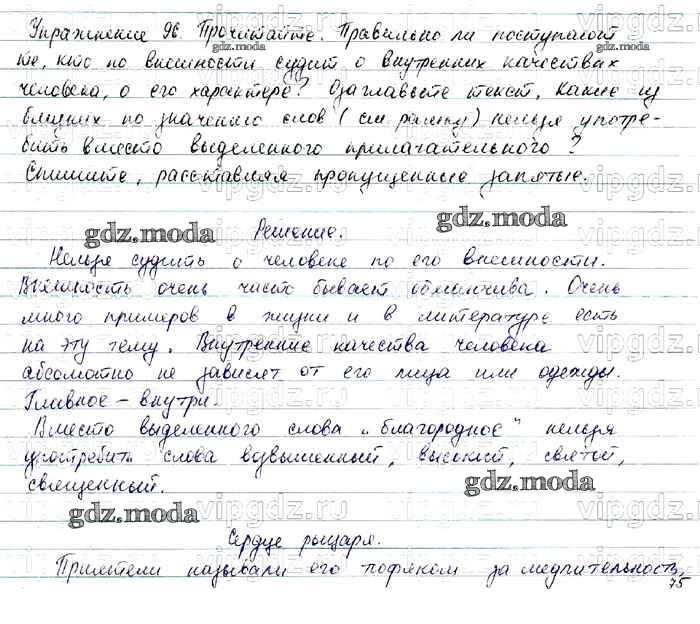 Упражнение 96. Прочитайте. Правильно ли поступают
те, кто по внешности судит о внутренних качествах
человека, о его характере? Озаглавьте текст. Какие из
близких по значению слов (см. рамку) нельзя употре-
бить вместо выделенного прилагательного?
Спишите, расставляя пропущенные запятые.
Решение.
Нельзя судить о человеке по его внешности.
Внешность очень часто бывает обманчива. Очень
много примеров в жизни и в литературе есть
на эту тему. Внутренние качества человека
абсолютно не зависят от его лица или одежды.
Главное - внутри.
Вместо выделенного слова "благородное" нельзя
употребить слова возвышенный, высокий, святой,
священный.
Сердце рыцаря.
Приятели называли его тюфяком за медлительность,
75
gdz.moda
gdz.moda
gdz.moda
gdz.moda
gdz.moda
gdz.moda
vipgdz.ru